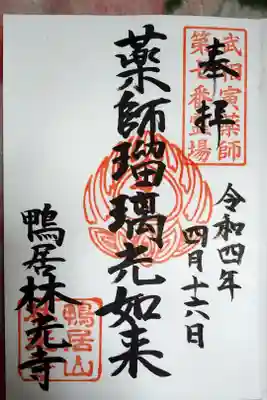 武相寅薬師
第七番霊場
奉拝
令和四年
四月十六日
藥師瑠璃光如来
鴨居山
鴨居林光寺